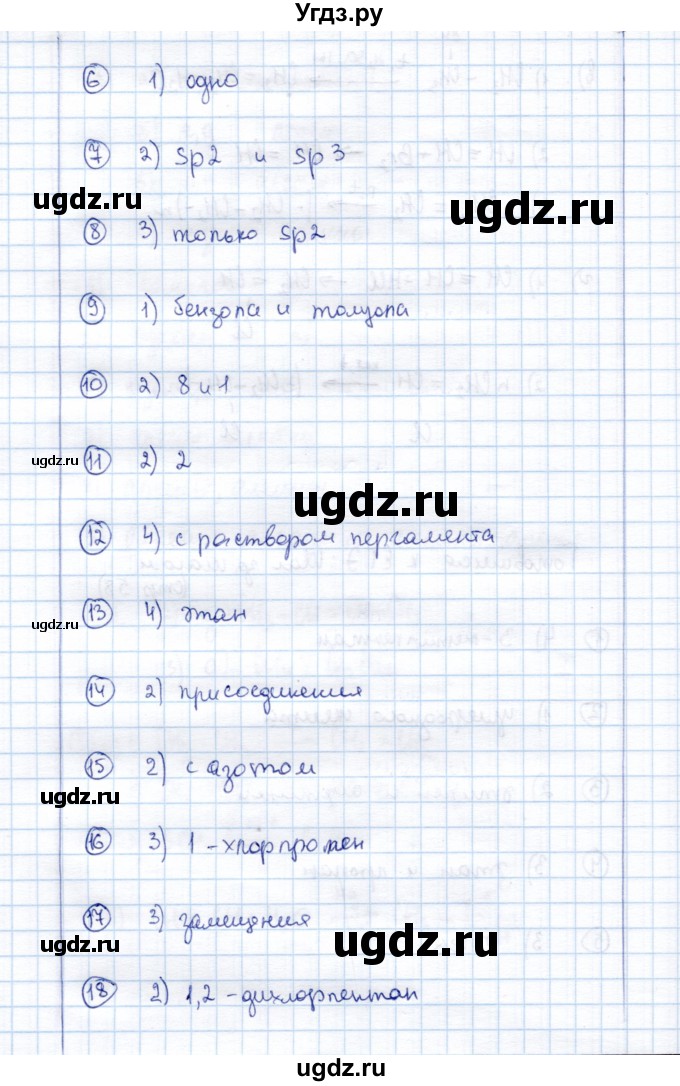 Угдз.ру
6 1) одно
7 2) Sp2 и sp3
ugdz.ru
ugdz.ru
8 3) только sp2
9 1) бензола и толуола
10 2) 8 и 1
ugdz.ru
11 2) 2
ugdz.ru
12 4) с раствором перманента
13 4) этан
ugdz.ru
14 2) присоединения
15 2) с азотом
ugdz.ru
16 3) 1-хлорпропен
17 3) замещения
ugdz.ru
ugdz.ru
18 2) 1,2-дихлорпентан
ugdz.ru